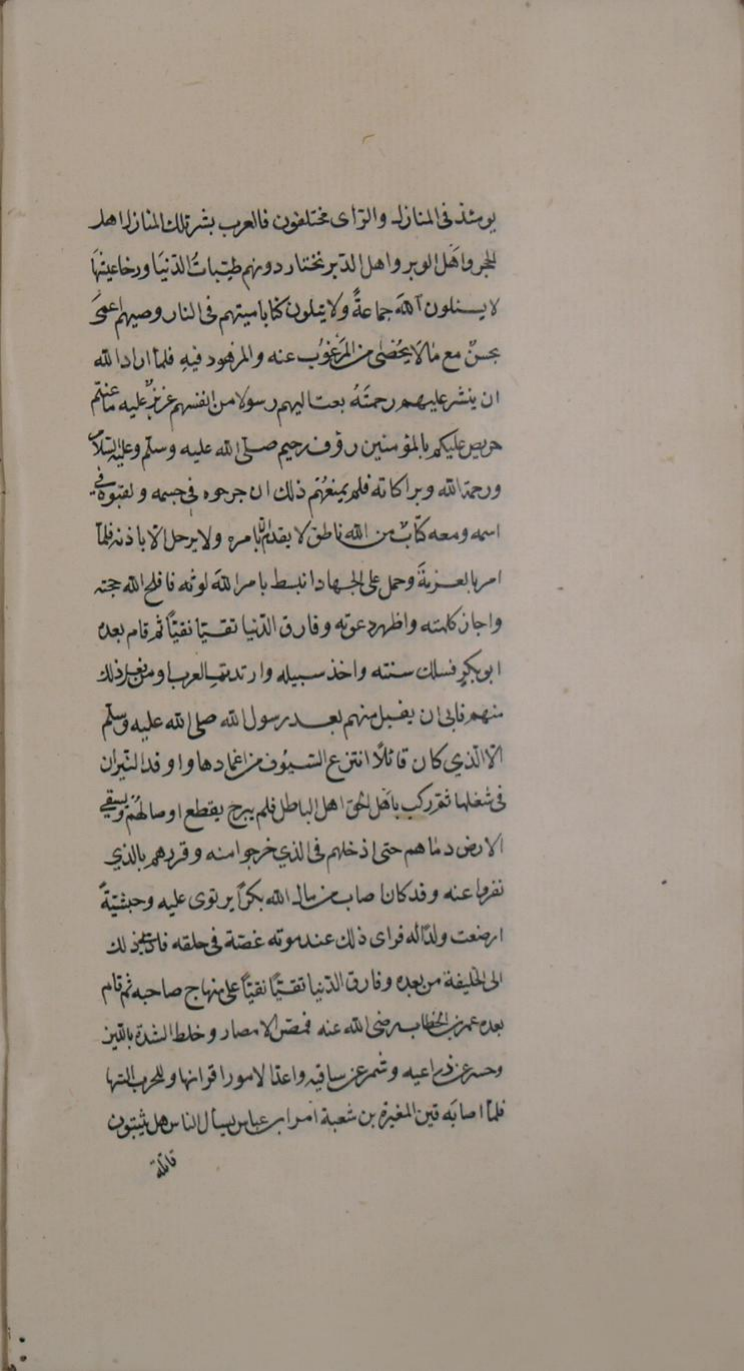 يومئذ فى المنازل والراى مختلفون فالعرب بشر تلك المنازل اهل
الحجر واهل الوبر واهل الدبر نختار دونهم طيبات الدنيا ورخاعيشها
لا يسئلون الله جماعةً ولا يتلون كتابا ميتهم فى النار وحيهم اعمى
بحسن مع مالا يحصى من المرغوب عنه والمزهود فيه فلما اراد الله
ان ينشر عليهم رحمته بعث اليهم رسولا من انفسهم عزيز عليه ما عنتم
حريص عليكم بالمؤمنين رؤف رحيم صلى الله عليه وسلم وعليه السلام
ورحمة الله وبركاته فلم يمنعهم ذلك ان جرحوه فى جسمه ولقبوه فى
اسمه ومعه كتاب من الله ناطق لا يقدم الا بامره ولا يرحل الا باذنه فلما
امر بالعزمة وحمل على الجهاد انبسط بامر الله لوثه فافلح الله حجته
واجاز كلمته واظهر دعوته وفارق الدنيا تقيا نقياً ثم قام بعده
ابو بكر فسلك سنته واخذ سبيله وارتدت العرب او من فعل ذلك
منهم فابى ان يقبل منهم بعد رسول الله صلى الله عليه وسلم
الا الذي كان قائلاً انتزع السيوف من اغمادها واوقد النيران
فى شعلها ثم ركب باهل الحق اهل الباطل فلم يبرح يقطع اوصالهم ويسقي
الارض دماهم حتى ادخلهم فى الذي خرجوا منه وقررهم بالذي
نفروا عنه وقد كان اصاب من مال الله بكراً يرتوى عليه وحبشيةً
ارضعت ولدا له فراى ذلك عند موته غصة فى حلقه فادى ذلك
الى الخليفة من بعده وفارق الدنيا تقيًا نقياً على منهاج صاحبه ثم قام
بعده عمر بن الخطاب رضى الله عنه فمصر الامصار وخلط الشدة باللين
وحسر عن ذراعيه وشمر عن ساقيه واعدا لامور اقرانها وللحرب التها
فلما اصابه قين المغيرة بن شعبة امر ابن عباس يسأل الناس هل يثبتون
قاتله